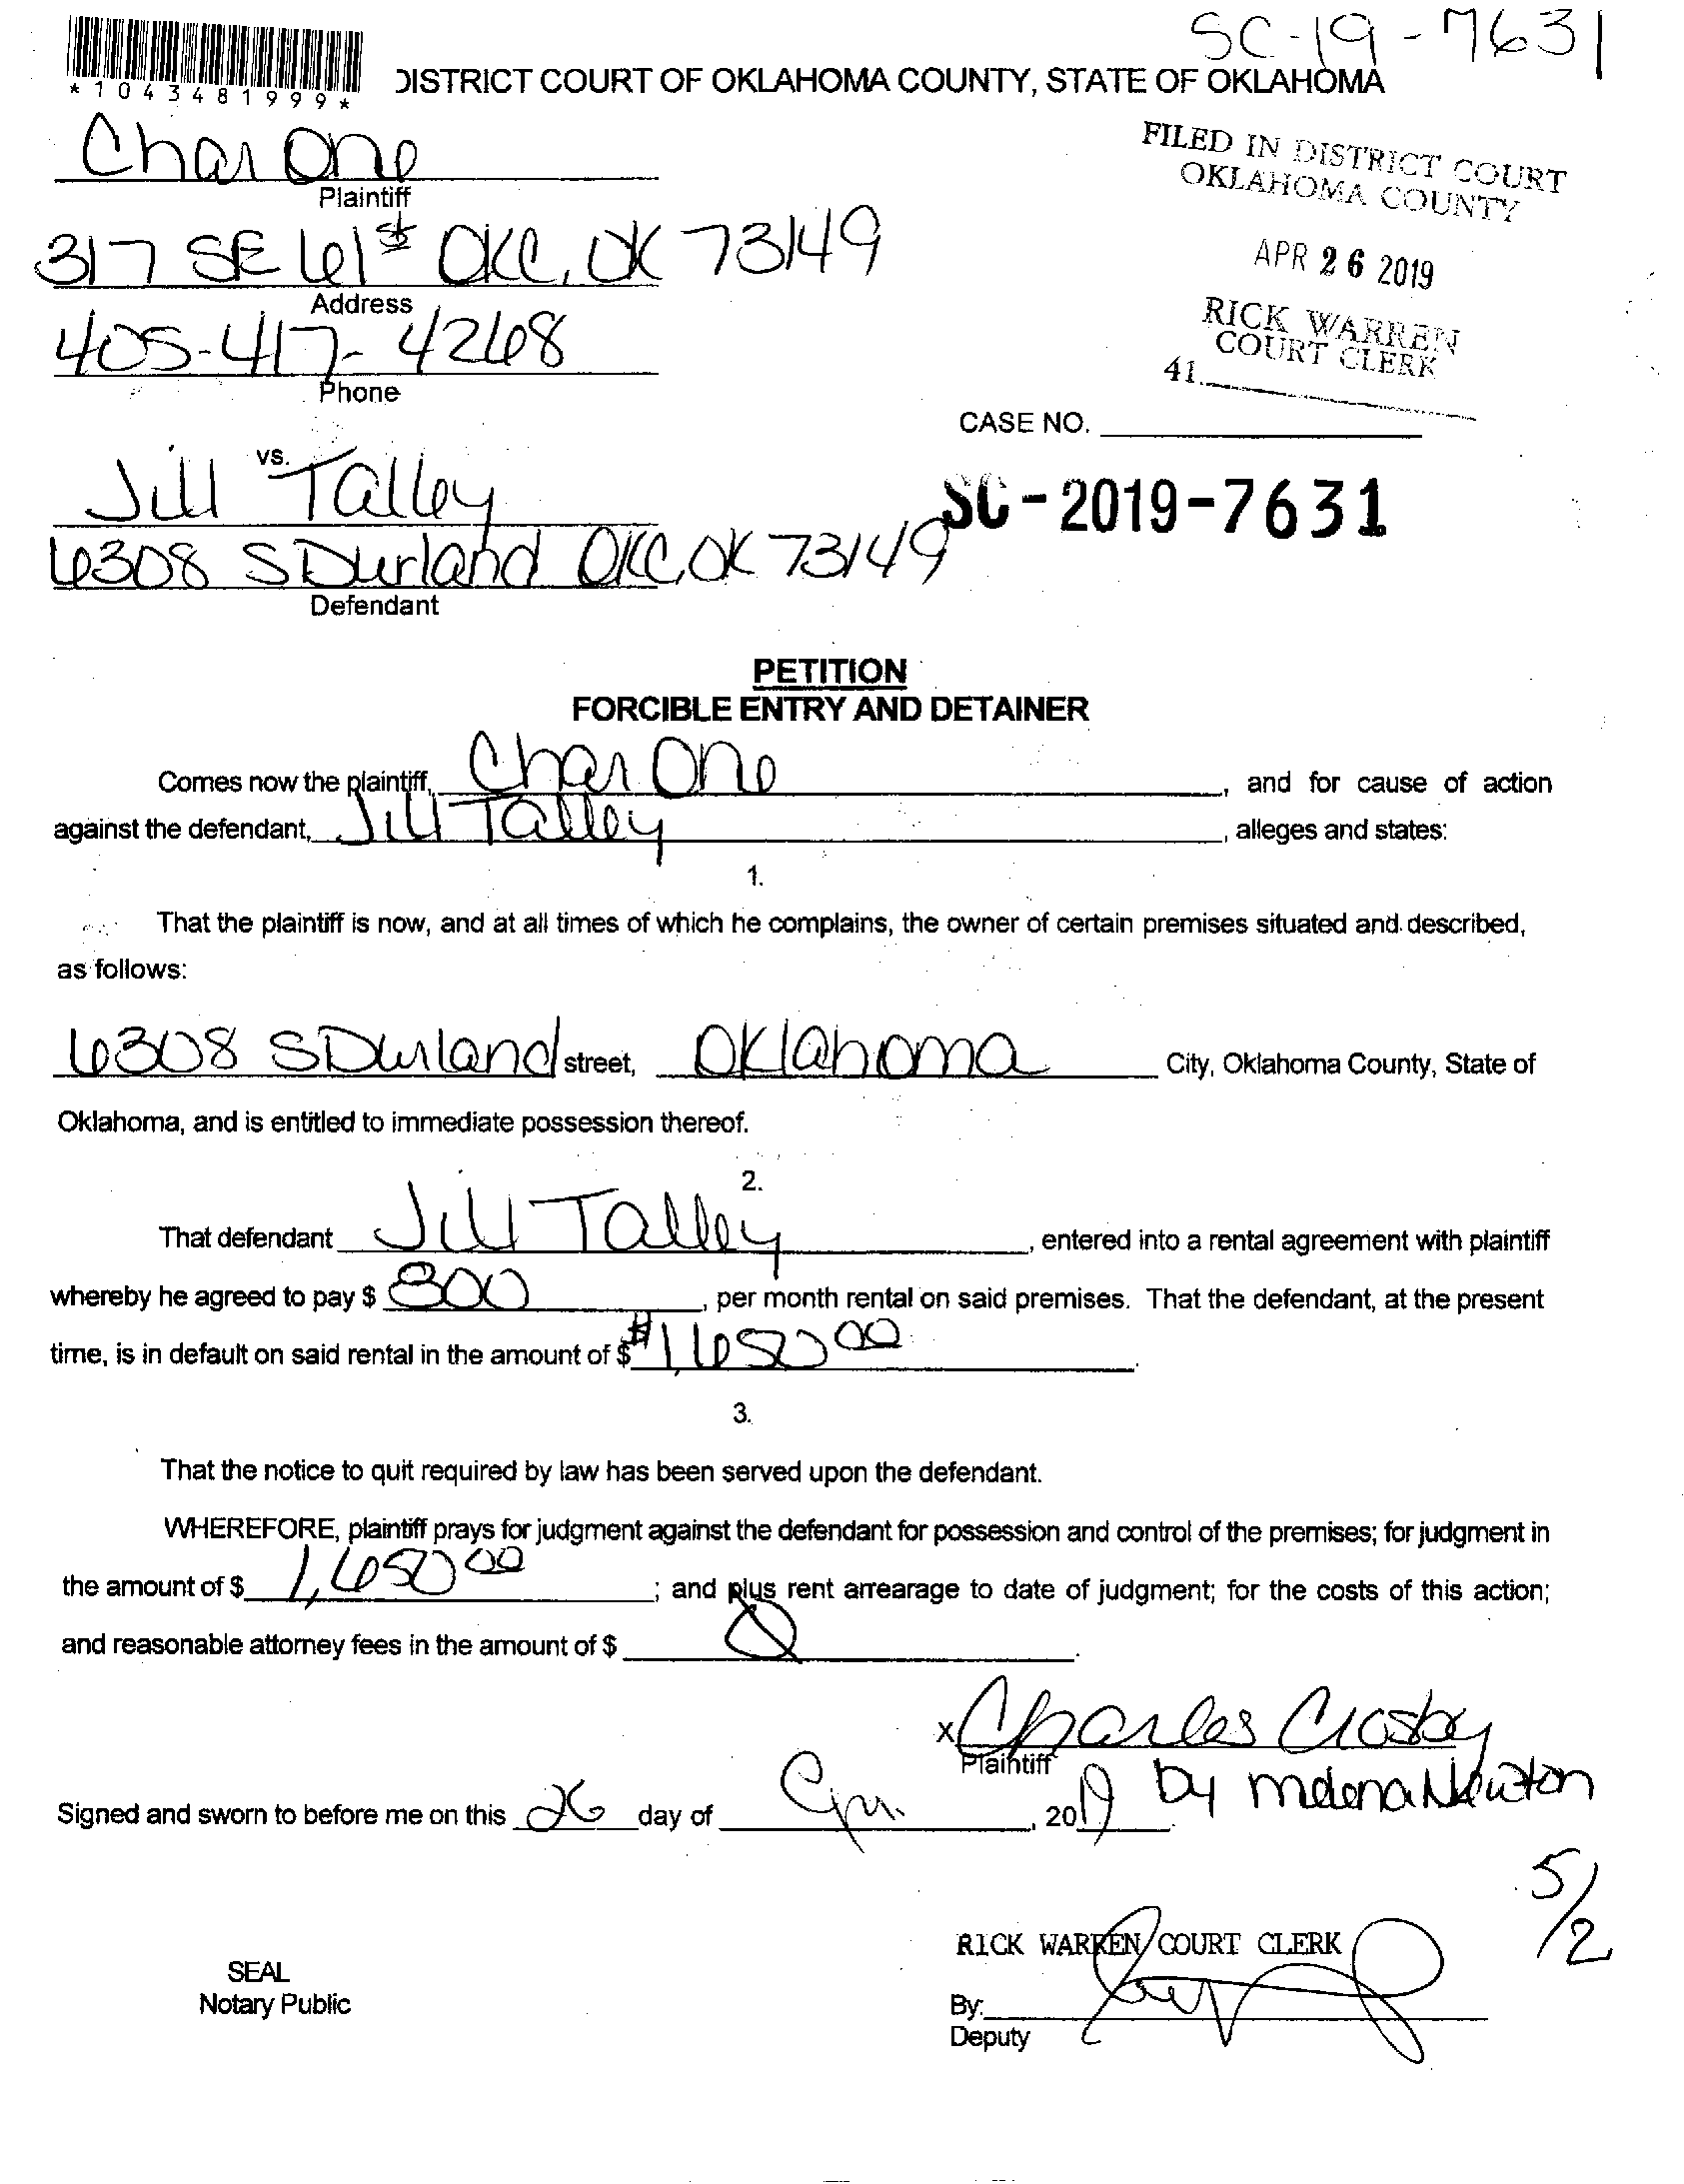 SC-19-7631
*1043481999*
DISTRICT COURT OF OKLAHOMA COUNTY, STATE OF OKLAHOMA
Char One
Plaintiff
317 SE 61st OKC, OK 73149
Address
405-417-4268
Phone
FILED IN DISTRICT COURT
OKLAHOMA COUNTY
APR 26 2019
RICK WARREN
COURT CLERK
41.
CASE NO.
SC-2019-7631
vs.
Jill Talley
6308 S Durland OKC, OK 73149
Defendant
PETITION
FORCIBLE ENTRY AND DETAINER
Comes now the plaintiff, Char One, and for cause of action
against the defendant, Jill Talley, alleges and states:
1.
That the plaintiff is now, and at all times of which he complains, the owner of certain premises situated and described,
as follows:
6308 S Durland street, Oklahoma City, Oklahoma County, State of
Oklahoma, and is entitled to immediate possession thereof.
2.
That defendant Jill Talley, entered into a rental agreement with plaintiff
whereby he agreed to pay $ 800, per month rental on said premises. That the defendant, at the present
time, is in default on said rental in the amount of $ $1,650 00.
3.
That the notice to quit required by law has been served upon the defendant.
WHEREFORE, plaintiff prays for judgment against the defendant for possession and control of the premises; for judgment in
the amount of $ 1,650 00; and plus rent arrearage to date of judgment; for the costs of this action;
and reasonable attorney fees in the amount of $ 0.
X Charles Crosby
Plaintiff
by Melena Newton
Signed and sworn to before me on this 26 day of , 2019.
5/2
SEAL
Notary Public
RICK WARREN COURT CLERK
By:
Deputy